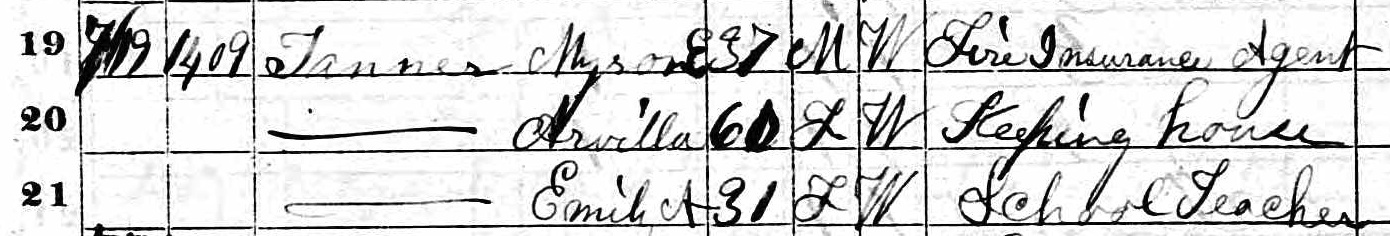 19 719 1409 Tanner Myron E 37 M W Fire Insurance Agent
20 —— Arvilla 60 F W Keeping house
21 —— Emily A 31 F W School Teacher